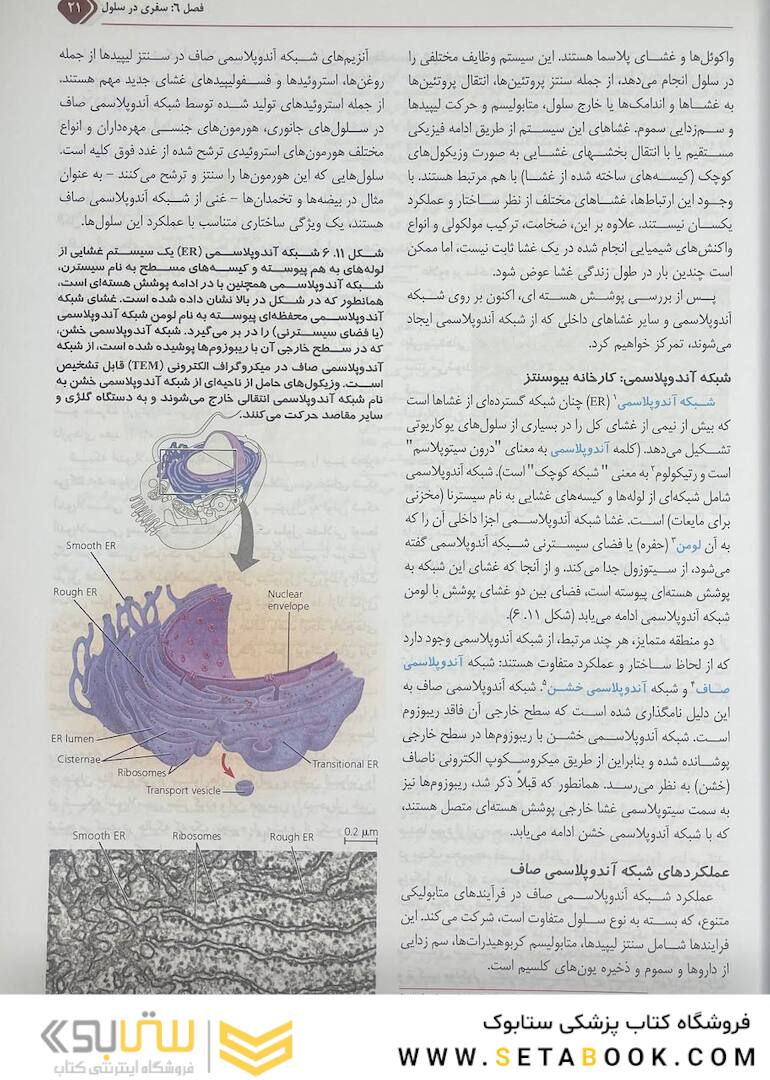 ۲۱ فصل ٦: سفری در سلول
واکوئل‌ها و غشـای پلاسما هستند. این سیستم وظایف مختلفی را
در سلول انجام می‌دهد، از جمله سنتز پروتئین‌ها، انتقال پروتئین‌ها
به غشـاها و اندامک‌ها یا خارج سلول، متابولیسم و حرکت لیپیدها
و سـم‌زدایی سموم. غشاهای این سیسـتم از طریق ادامه فیزیکی
مسـتقیم یا با انتقال بخشـهای غشـایی به صورت وزیکول‌های
کوچک (کیسـه‌های ساخته شده از غشـا) با هم مرتبط هستند. با
وجـود این ارتباط‌ها، غشـاهای مختلف از نظر سـاختار و عملکرد
یکسـان نیسـتند. علاوه بر این، ضخامت، ترکیب مولکولی و انواع
واکنش‌های شیمیایی انجام شده در یک غشا ثابت نیست، اما ممکن
است چندین بار در طول زندگی غشا عوض شود.
پـس از بررسـی پوشـش هسـته ای، اکنون بر روی شـبکه
آندوپلاسـمی و سایر غشاهای داخلی که از شـبکه آندوپلاسمی ایجاد
می‌شوند، تمرکز خواهیم کرد.
شبکه آندوپلاسمی: کارخانه بیوسنتز
شـبکه آندوپلاسـمی۱ (ER) چنان شبکه گسترده‌ای از غشاها است
که بیش از نیمی از غشای کل را در بسیاری از سلول‌های یوکاریوتی
تشـکیل می‌دهد. (کلمه آندوپلاسمی به معنای "درون سیتوپلاسم"
است و رتیکولوم۲ به معنی " شبکه کوچک" است). شبکه آندوپلاسمی
شامل شبکه‌ای از لوله‌ها و کیسه‌های غشایی به نام سیسترنا (مخزنی
برای مایعات) اسـت. غشا شبکه آندوپلاسـمی اجزا داخلی آن را که
به آن لومن۳ (حفره) یا فضای سیسـترنی شـبکه آندوپلاسمی گفته
می‌شود، از سیـتوزول جدا می‌کند. و از آنجا که غشای این شبکه به
پوشش هسته‌ای پیوسته است، فضای بین دو غشای پوشش با لومن
شبکه آندوپلاسمی ادامه می‌یابد (شکل ۱۱. ۶).
دو منطقه متمایز، هر چند مرتبط، از شبکه آندوپلاسمی وجود دارد
که از لحاظ سـاختار و عملکرد متفاوت هستند: شبکه آندوپلاسمی
صـاف۴ و شبکه آندوپلاسمی خشن۵. شبکه آندوپلاسمی صاف به
این دلیل نامگذاری شده است که سطح خارجی آن فاقد ریبوزوم
اسـت. شبکه آندوپلاسمی خشن با ریبوزوم‌ها در سطح خارجی
پوشـانده شده و بنابراین از طریق میکروسـکوپ الکترونی ناصاف
(خشن) به نظر می‌رسـد. همانطور که قبلاً ذکر شد، ریبوزوم‌ها نیز
به سمت سیتوپلاسمی غشا خارجی پوشش هسته‌ای متصل هستند،
که با شبکه آندوپلاسمی خشن ادامه می‌یابد.
عملکردهای شبکه آندوپلاسمی صاف
عملکرد شـبکه آندوپلاسـمی صاف در فرآیندهای متابولیکی
متنوع، که بسـته به نوع سـلول متفاوت است، شـرکت می‌کند. این
فرایندها شـامل سنتز لیپیدها، متابولیسم کربوهیدرات‌ها، سم زدایی
از داروها و سموم و ذخیره یون‌های کلسیم است.
آنزیم‌های شـبکه آندوپلاسمی صاف در سنتز لیپیدها از جمله
روغن‌ها، استروئیدها و فسـفولیپیدهای غشای جدید مهم هستند.
از جمله استروئیدهای تولید شـده توسط شبکه آندوپلاسمی صاف
در سـلول‌های جانوری، هورمون‌های جنسـی مهره‌داران و انواع
مختلف هورمون‌های استروئیدی ترشح شده از غدد فوق کلیه است.
سلول‌هایی که این هورمون‌ها را سنتز و ترشح می‌کنند – به عنوان
مثال در بیضه‌ها و تخمدان‌ها - غنی از شـبکه آندوپلاسـمی صاف
هستند، یک ویژگی ساختاری متناسب با عملکرد این سلول‌ها.
شـکل ۱۱. ۶ شـبکه آندوپلاسـمی (ER) یک سیسـتم غشایی از
لوله‌های به هم پیوسـته و کیسـه‌های مسـطح به نام سیسترن،
شـبکه آندوپلاسـمی همچنین با در ادامه پوشش هسته‌ای است،
همانطور که در شـکل در بالا نشان داده شده است. غشای شبکه
آندوپلاسـمی محفظه‌ای پیوسته به نام لومن شبکه آندوپلاسمی
(یا فضای سیسـترنی) را در بر می‌گیرد. شبکه آندوپلاسمی خشن،
که در سـطح خارجی آن با ریبوزوم‌ها پوشیده شده است، از شبکه
آندوپلاسـمی صاف در میکروگراف الکترونی (TEM) قابل تشخیص
اسـت. وزیکول‌های حامل از ناحیه‌ای از شبکه آندوپلاسمی خشن به
نام شبکه آندوپلاسمی انتقالی خارج می‌شوند و به دستگاه گلژی و
سایر مقاصد حرکت می‌کنند.
Smooth ER
Rough ER
Nuclear
envelope
ER lumen
Cisternae
Ribosomes
Transport vesicle
Transitional ER
Smooth ER
Ribosomes
Rough ER
0.2 µm
فروشگاه کتاب پزشکی ستابوک
WWW.SETABOOK.COM
ستابوک
فروشگاه اینترنتی کتاب